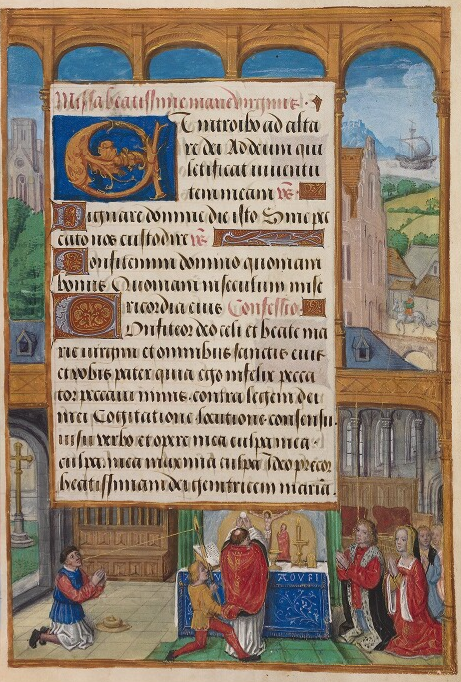 Missa beatissime marie virginis ·
Et introibo ad alta
re dei Ad deum qui
letificat iuuentu
tem meam vs
Dignare domine die isto Sine pec
cato nos custodire vs
Confitemini domino quoniam
bonus Quoniam in seculum mise
ricordia eius Confessio.
Confiteor deo celi et beate ma
rie virgini et omnibus sanctis eius
et vobis pater quia ego infelix pecca
tor peccaui nimis contra legem dei
mei Cogitatione locutione consensu
uisu verbo et opere mea culpa mea
culpa mea maxima culpa Ideo precor
beatissimam dei genitricem mariā.